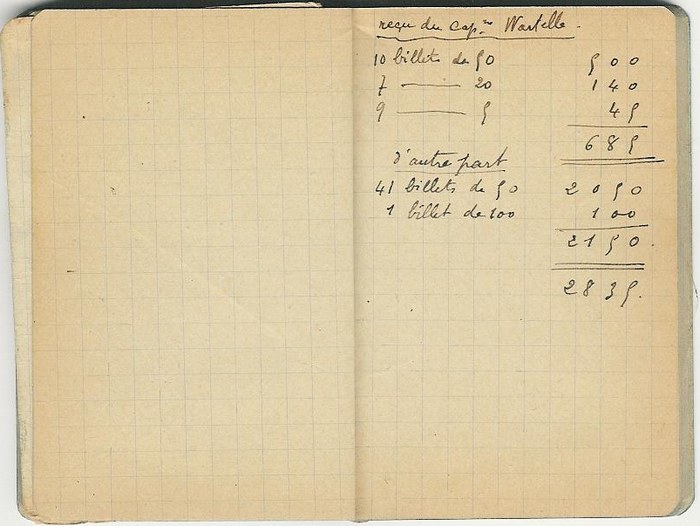 reçu du capne Wartelle.
10 billets de 50 500
7 —— 20 140
9 —— 5 45
685
d'autre part
41 billets de 50 2050
1 billet de 100 100
2150.
2835.